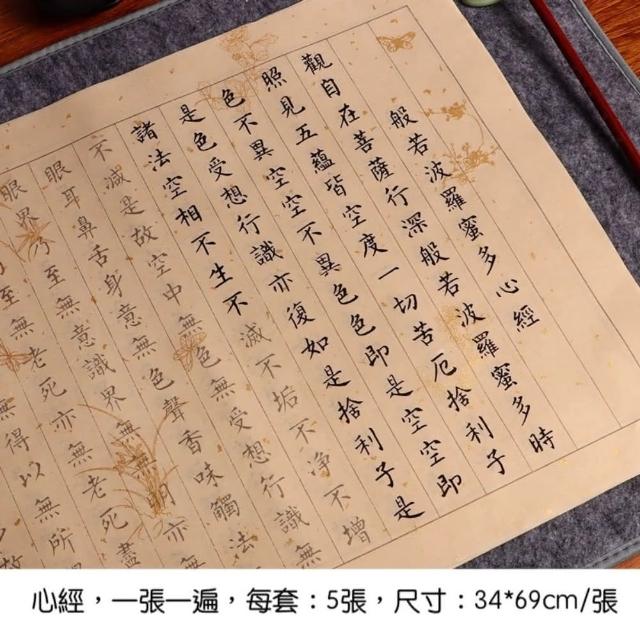 般若波羅蜜多心經
觀自在菩薩行深般若波羅蜜多時
照見五蘊皆空度一切苦厄捨利子
色不異空空不異色色即是空空即
是色受想行識亦復如是捨利子是
諸法空相不生不滅不垢不淨不增
不減是故空中無色無受想行識無
眼耳鼻舌身意無色聲香味觸法
眼界乃至無意識界無明亦
至無老死亦無老死盡
無得以無所
心經，一張一遍，每套：5張，尺寸：34*69cm/張